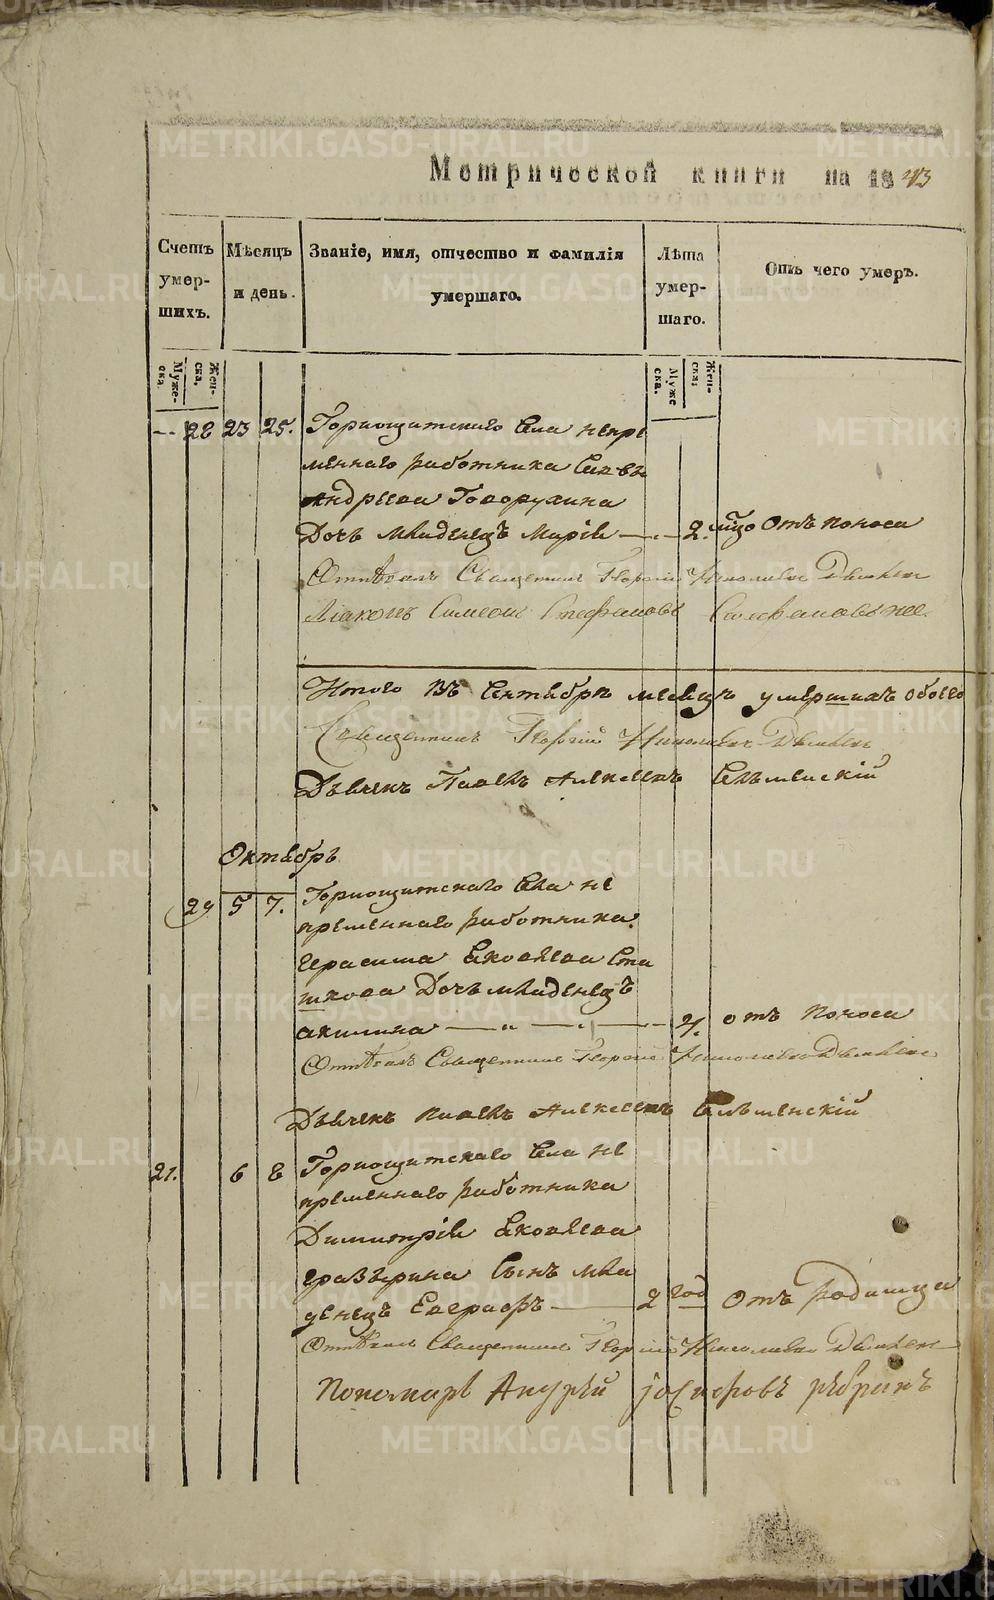 Метрической книги на 1843
Счетъ умер-шихъ.
Мѣсяцъ и день.
Званіе, имя, отчество и фамилія умершаго.
Лѣта умер-шаго.
Отъ чего умеръ.
Муже-ска.
Жен-ска.
Муже ска.
Жен-ска.
28 23 25. Горнощитскаго села непре
меннаго работника Савы
Андреева Говорухина
Дочь младенецъ Марія 2. мѣ отъ поноса
Отпѣвалъ Священникъ Георгій Николаевъ
Діаконъ Симеонъ Стефановъ
Итого въ Сентябрѣ месяцѣ умершихъ обоего
Священникъ Георгій Николаевъ
Дьячекъ Павелъ Алексеевъ
Октябрь
29 5 7. Горнощитскаго села не
пременнаго работника
Герасима Яковлева Ста
шкова Дочь младенецъ
акилина отъ поноса
Отпѣвалъ Священникъ Георгій Николаевъ
Дьячекъ Павелъ Алексеевъ
21. 6 8 Горнощитскаго села не
пременнаго работника
Димитрія Яковлева
Сынъ мла
денецъ Евграфъ 2 год отъ родимца
Отпѣвалъ Священникъ Георгій Николаевъ
Пономарь Андрей Іосифовъ
METRIKI.GASO-URAL.RU